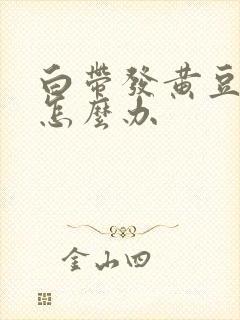 白帶發黄豆
怎麼办
金山四